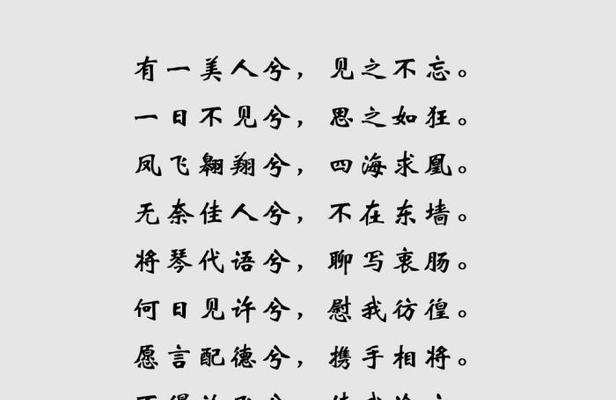 有一美人兮，见之不忘。
一日不见兮，思之如狂。
凤飞翱翔兮，四海求凰。
无奈佳人兮，不在东墙。
将琴代语兮，聊写衷肠。
何日见许兮，慰我彷徨。
愿言配德兮，携手相将。